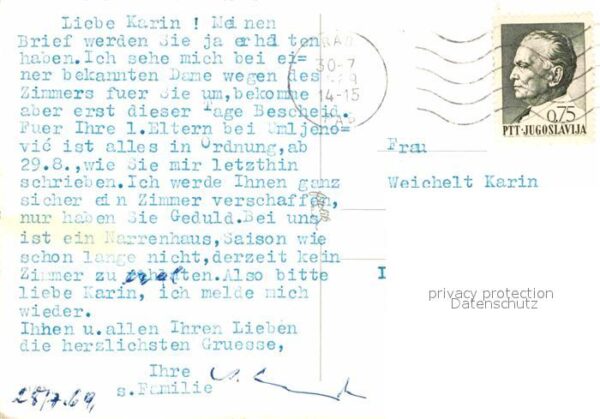 Liebe Karin ! Meinen
Brief werden Sie ja erhalten
haben.Ich sehe mich bei ei=
ner bekannten Dame wegen des
Zimmers fuer Sie um,bekomme
aber erst dieser Tage Bescheid.
Fuer Ihre l.Eltern bei Smljeno=
vić ist alles in Ordnung,ab
29.8.,wie Sie mir letzthin
schrieben.Ich werde Ihnen ganz
sicher ein Zimmer verschaffen,
nur haben Sie Geduld.Bei uns
ist ein Narrenhaus,Saison wie
schon lange nicht,derzeit kein
Zimmer zu
Also bitte
liebe Karin, ich melde mich
wieder.
Ihnen u.allen Ihren Lieben
die herzlichsten Gruesse,
Ihre
s.Familie
28/7.69,
30-7
14-15
RAB
0.75
PTT-JUGOSLAVIJA
Frau
Weichelt Karin
privacy protection
Datenschutz